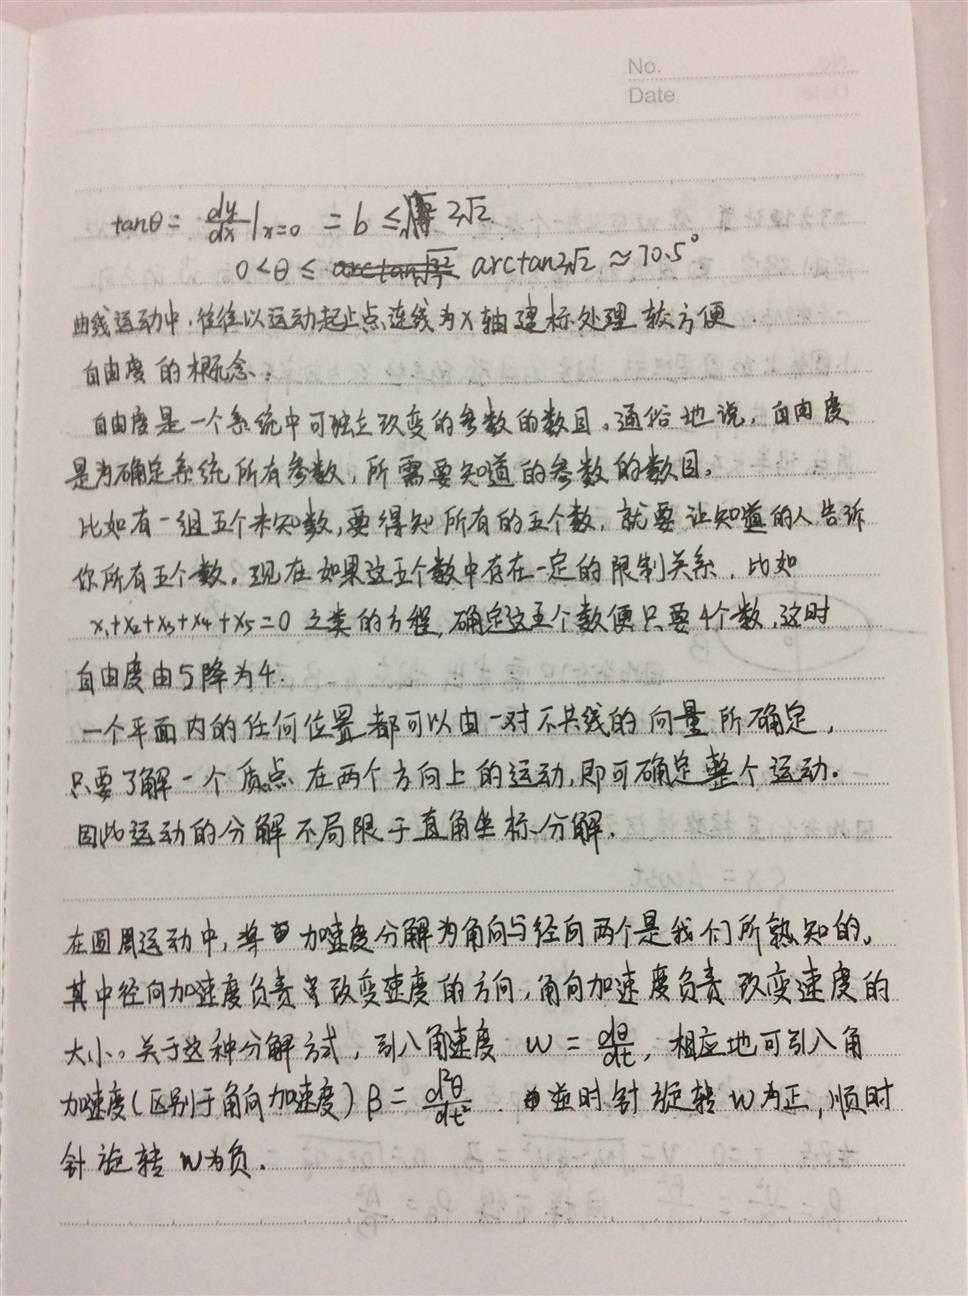 No.
Date
tanθ = dy/dx |x=0 = b ≤ 2√2
0 < θ ≤ arctan2√2 ≈ 70.5°
曲线运动中,往往以运动起止点连线为x轴建标处理较方便.
自由度的概念:
自由度是一个系统中可独立改变的参数的数目。通俗地说,自由度
是为确定系统所有参数,所需要知道的参数的数目。
比如有一组五个未知数,要得知所有的五个数,就要让知道的人告诉
你所有五个数。现在如果这五个数中存在一定的限制关系,比如
x₁+x₂+x₃+x₄+x₅=0 之类的方程,确定这五个数便只要4个数,这时
自由度由5降为4.
一个平面内的任何位置都可以由一对不共线的向量所确定,
只要了解一个质点在两个方向上的运动,即可确定整个运动。
因此运动的分解不局限于直角坐标分解.
在圆周运动中,将加速度分解为角向与径向两个是我们所熟知的。
其中径向加速度负责改变速度的方向,角向加速度负责改变速度的
大小。关于这种分解方式,引入角速度 w = dθ/dt, 相应地可引入角
加速度(区别于角向加速度) β = d²θ/dt². 逆时针旋转w为正,顺时
针旋转w为负.